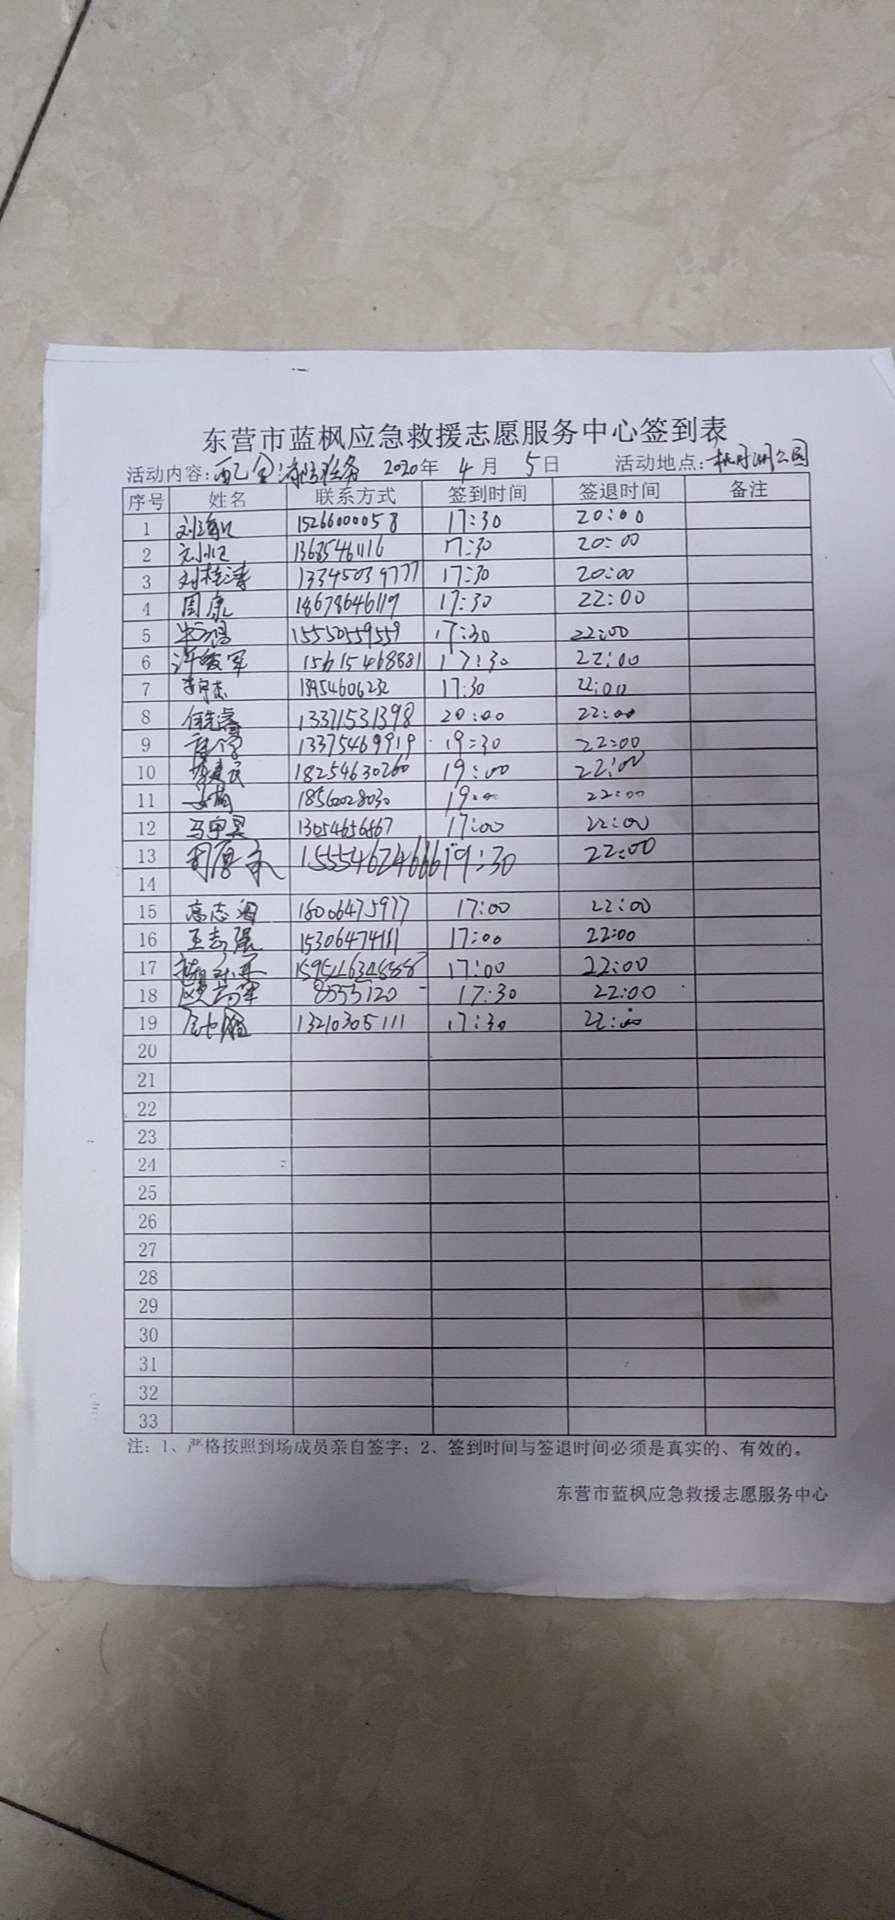 东营市蓝枫应急救援志愿服务中心签到表
活动内容: 2020年 4月 5日 活动地点: 公园
序号 姓名 联系方式 签到时间 签退时间 备注
1 15266000058 17:30 20:00
2 13685461116 17:30 20:00
3 刘桂涛 13345039777 17:30 20:00
4 周康 18678646117 17:30 22:00
5 15550559559 17:30 22:00
6 许俊军 15615468881 17:30 22:00
7 18954606232 17:30 22:00
8 13371531398 20:00 22:00
9 13375469919 19:30 22:00
10 18254630260 19:00 22:00
11 18562028030 19:00 22:00
12 马宇昊 17:00 22:00
13 19:30 22:00
14
15 高志海 18006475977 17:00 22:00
16 王志强 15306474111 17:00 22:00
17 17:00 22:00
18 8555120 17:30 22:00
19 13210305111 17:30 22:00
20
21
22
23
24
25
26
27
28
29
30
31
32
33
注:1、严格按照到场成员亲自签字;2、签到时间与签退时间必须是真实的、有效的。
东营市蓝枫应急救援志愿服务中心